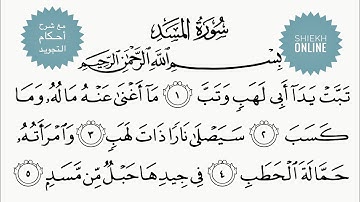 سُورَةُ المَسَد
مع شرح
أحكام
التجويد
SHIEKH
ONLINE
بِسْمِ اللَّهِ الرَّحْمَٰنِ الرَّحِيمِ
تَبَّتْ يَدَآ أَبِي لَهَبٍ وَتَبَّ ١ مَآ أَغْنَىٰ عَنْهُ مَالُهُۥ وَمَا
كَسَبَ ٢ سَيَصْلَىٰ نَارًا ذَاتَ لَهَبٍ ٣ وَٱمْرَأَتُهُۥ
حَمَّالَةَ ٱلْحَطَبِ ٤ فِي جِيدِهَا حَبْلٌ مِّن مَّسَدٍۭ ٥